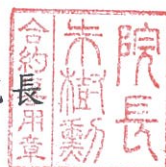 院長
朱樹勳
合約用章
長